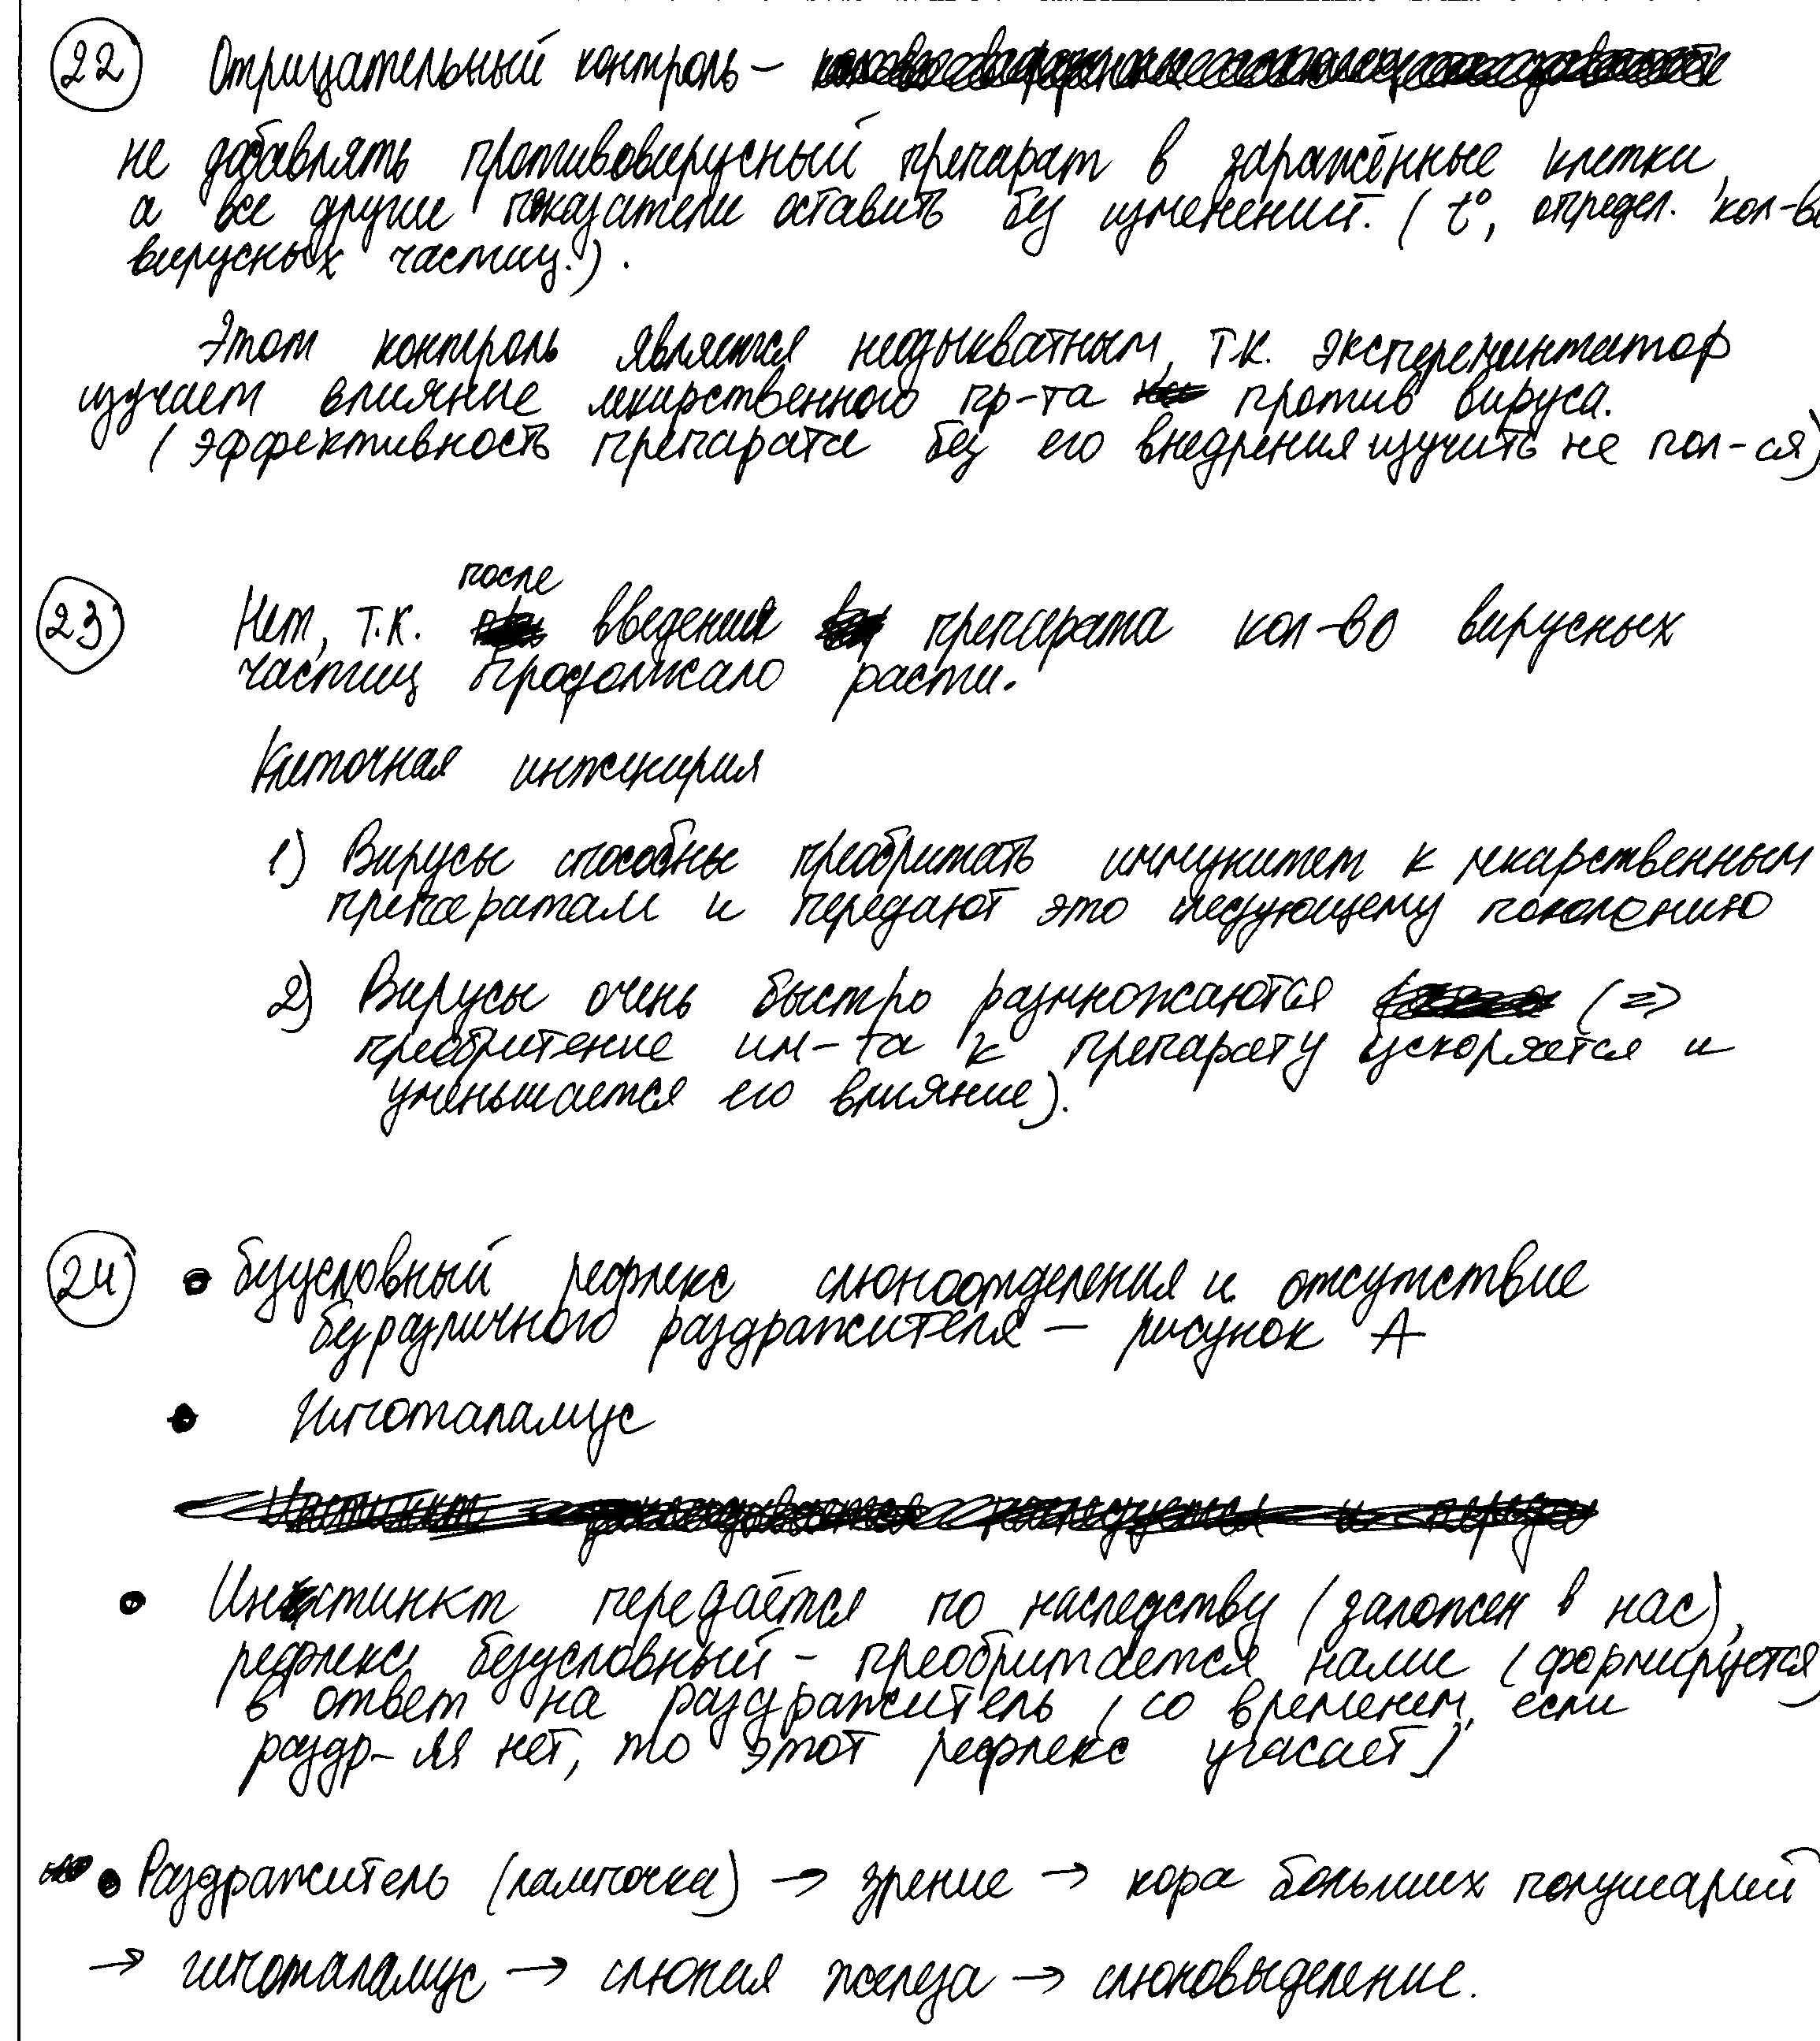 22 Отрицательный контроль –
не добавлять противовирусный препарат в заражённые клетки,
а все другие показатели оставить без изменений. (t°, определ. кол-во
вирусных частиц.).
Этот контроль является неадыкватным, т.к. эксперементатор
изучает влияние лекарственного пр-та против вируса.
(эффективность препарата без его внедрения изучить не пол-ся)
23 Нет, т.к. после введения препарата кол-во вирусных
частиц продолжало расти.
Клеточная инженирия
1) Вирусы способны преобритать иммунитет к лекарственным
препаратам и передают это следующему поколению
2) Вирусы очень быстро размножаются (=>
преобритение им-та к препарату ускоряется и
уменьшается его влияние).
24 • безусловный рефлекс слюноотделения и отсутствие
безразличного раздражителя – рисунок А
• Гипоталамус
• Инстинкт передаётся по наследству (заложен в нас),
рефлекс безусловный – преобритается нами (формируется
в ответ на раздражитель, со временем, если
раздр-ля нет, то этот рефлекс угасает)
• Раздражитель (лампочка) → зрение → кора больших полушарий
→ гипоталамус → слюная железа → слюновыделение.